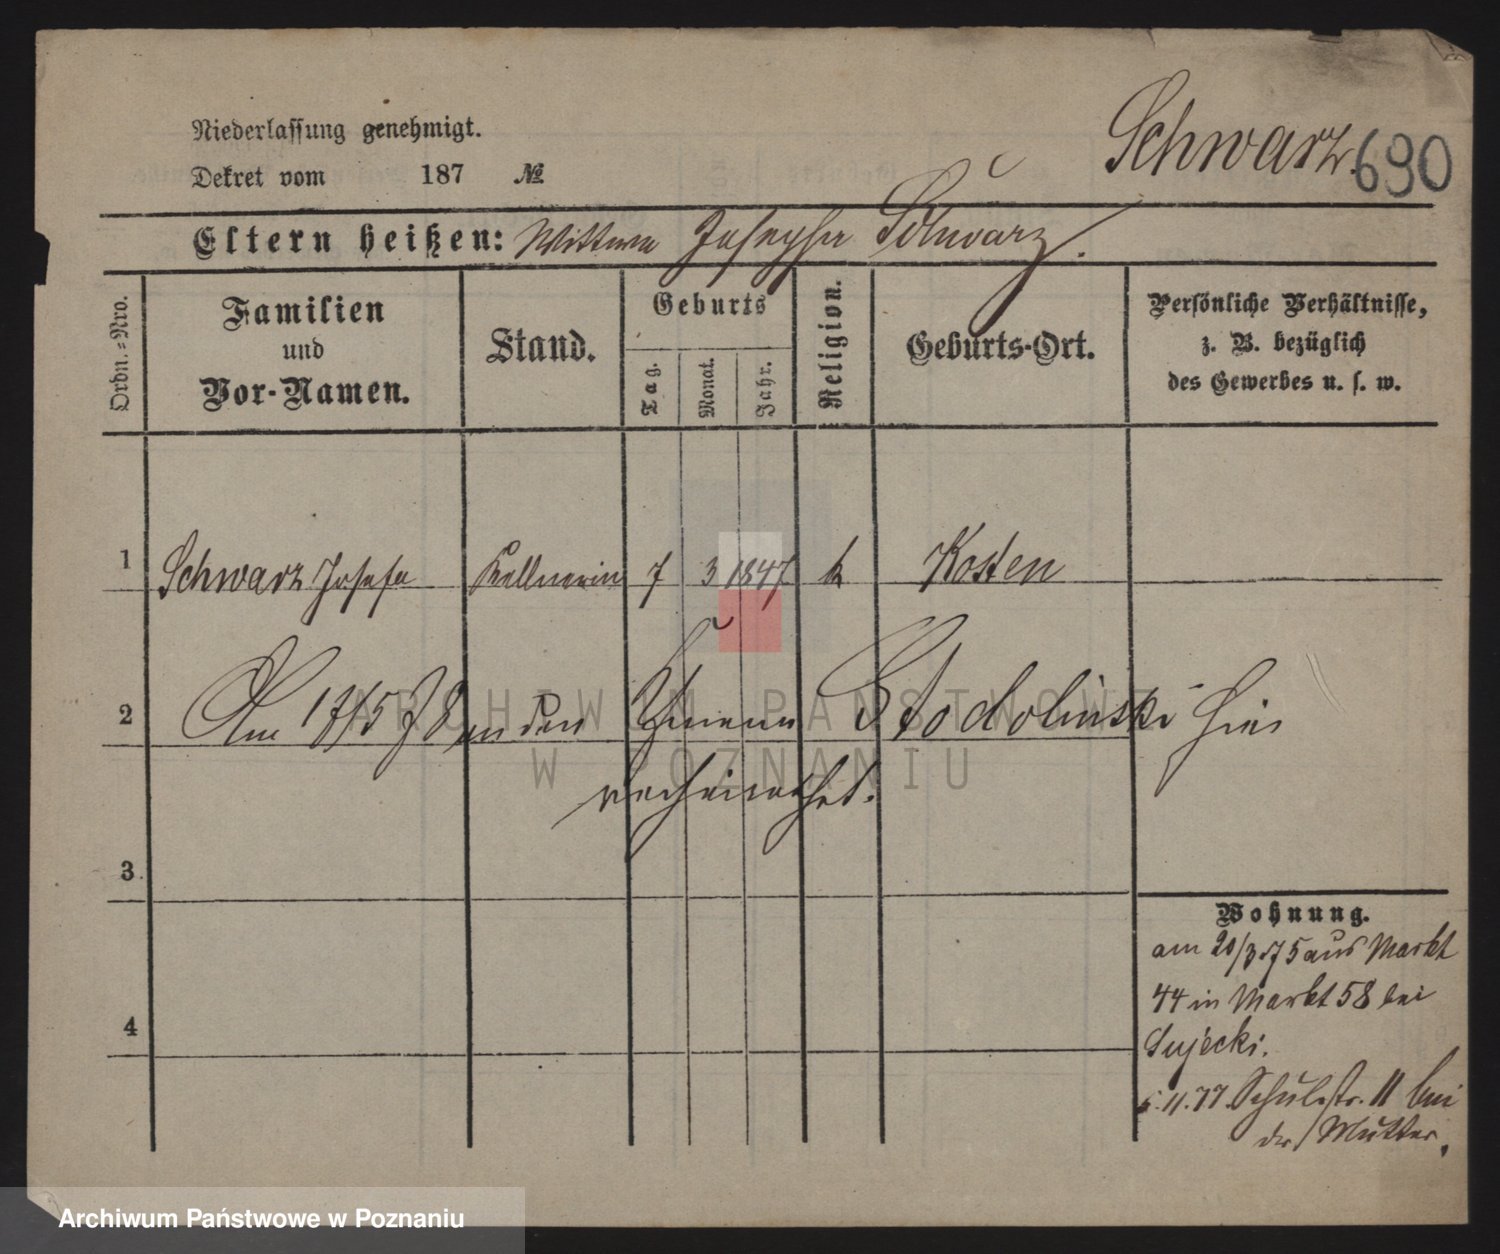 Niederlassung genehmigt.
Dekret vom 187 №
Schwarz. 690
Eltern heißen: Wittwe Josepha Schwarz.
Ordn.-Nro.
Familien
und
Vor-Namen.
Stand.
Geburts
Tag.
Monat.
Jahr.
Religion.
Geburts-Ort.
Persönliche Verhältnisse,
z. B. bezüglich
des Gewerbes u. s. w.
1 Schwarz Josefa Kellnerin 7 3 1847 k Kosten
2 Am 17/5 78 an den Stodolinski hier
verheirathet.
3
4
Wohnung.
am 20/3 75 aus Markt
44 in Markt 58 bei
Sujecki.
5.11.77. Schulstr. 11 bei
der Mutter.
ARCHIWUM PAŃSTWOWE
W POZNANIU
Archiwum Państwowe w Poznaniu